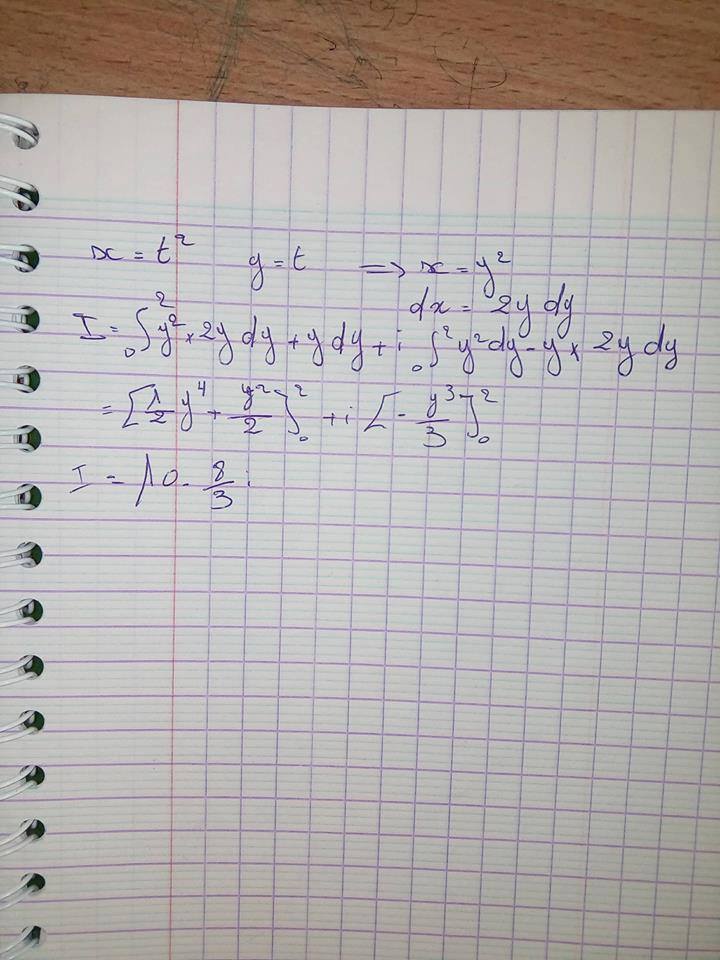 x = t² y = t ⟹ x = y²
dx = 2y dy
I = ₀∫² y² × 2y dy + y dy + i ₀∫² y² dy - y × 2y dy
= [1/2 y⁴ + y²/2]₀² + i [- y³/3]₀²
I = 10 - 8/3 i